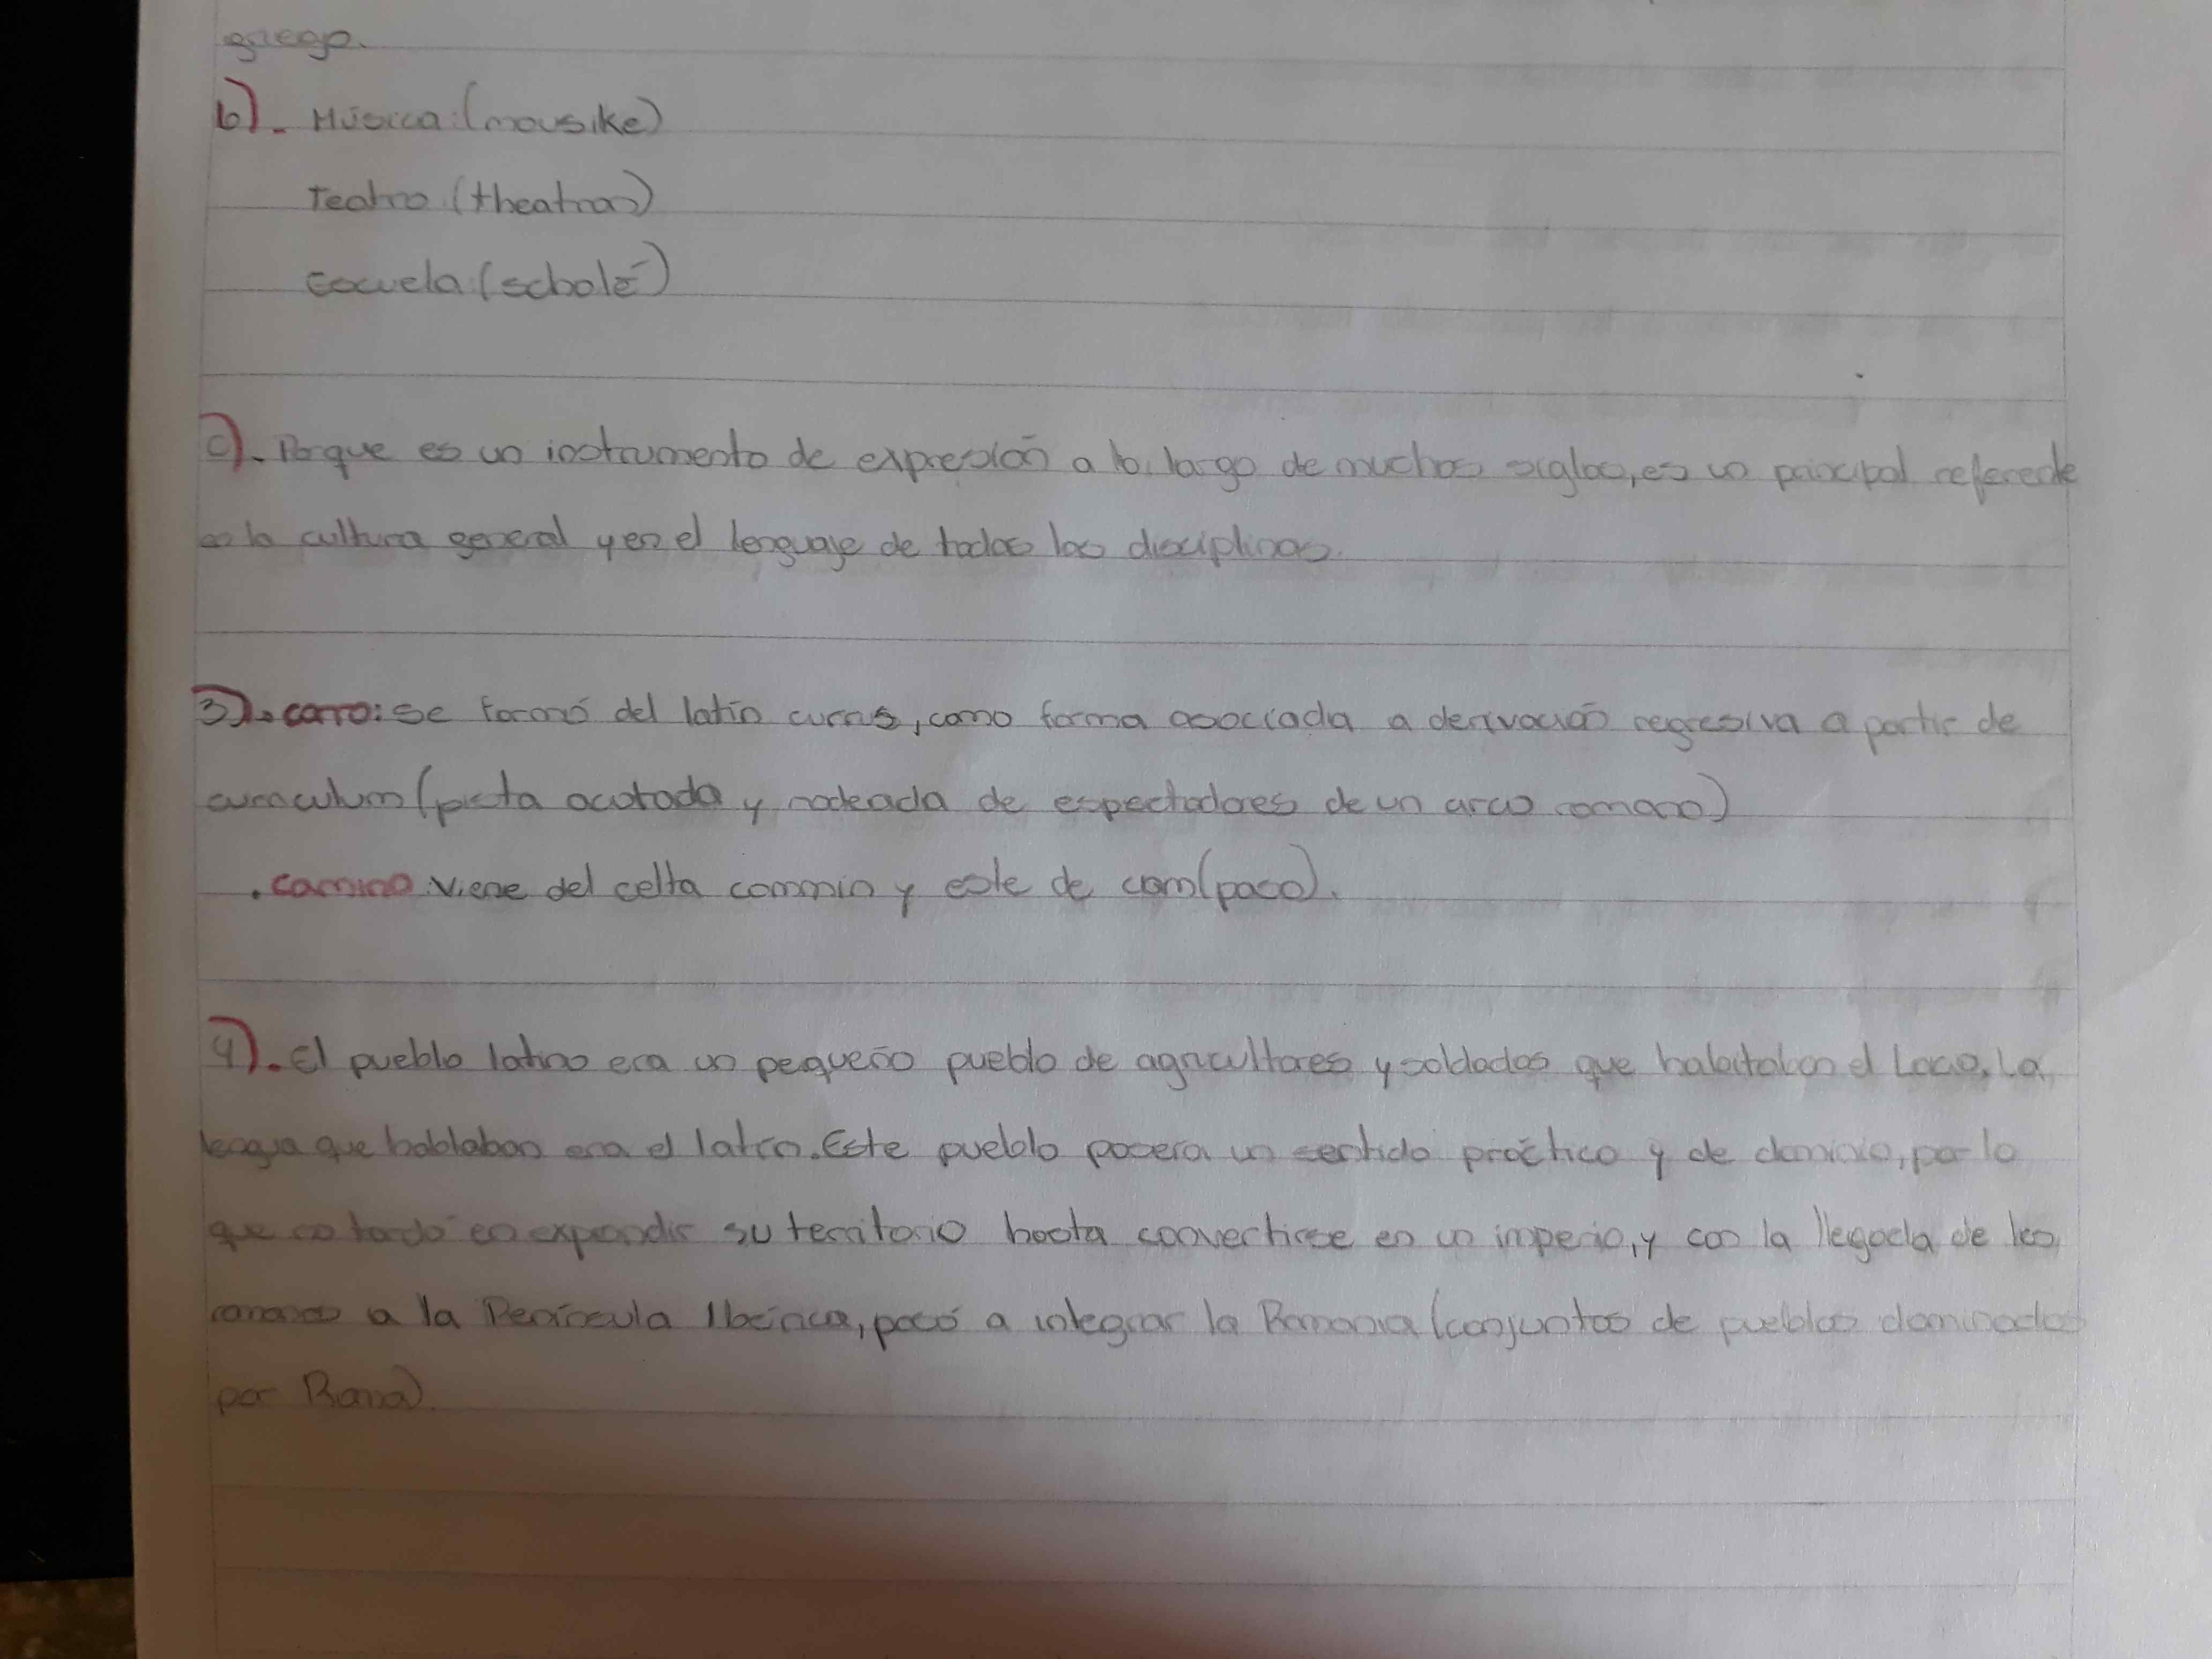 griego.
b).- Música: (mousike)
Teatro: (theatron)
Escuela: (scholé)
c).- Porque es un instrumento de expresión a lo largo de muchos siglos, es un principal referente
en la cultura general y en el lenguaje de todas las disciplinas.
3).• carro: se formó del latín currus, como forma asociada a derivación regresiva a partir de
curraculum (pista acotada y rodeada de espectadores de un arco romano)
• camino: viene del celta commin y este de cam (paso).
4).- El pueblo latino era un pequeño pueblo de agricultores y soldados que habitaban el Lacio. La
lengua que hablaban era el latín. Este pueblo poseía un sentido práctico y de dominio, por lo
que no tardó en expandir su territorio hasta convertirse en un imperio, y con la llegada de los
romanos a la Península Ibérica, pasó a integrar la Romania (conjuntos de pueblos dominados
por Roma).